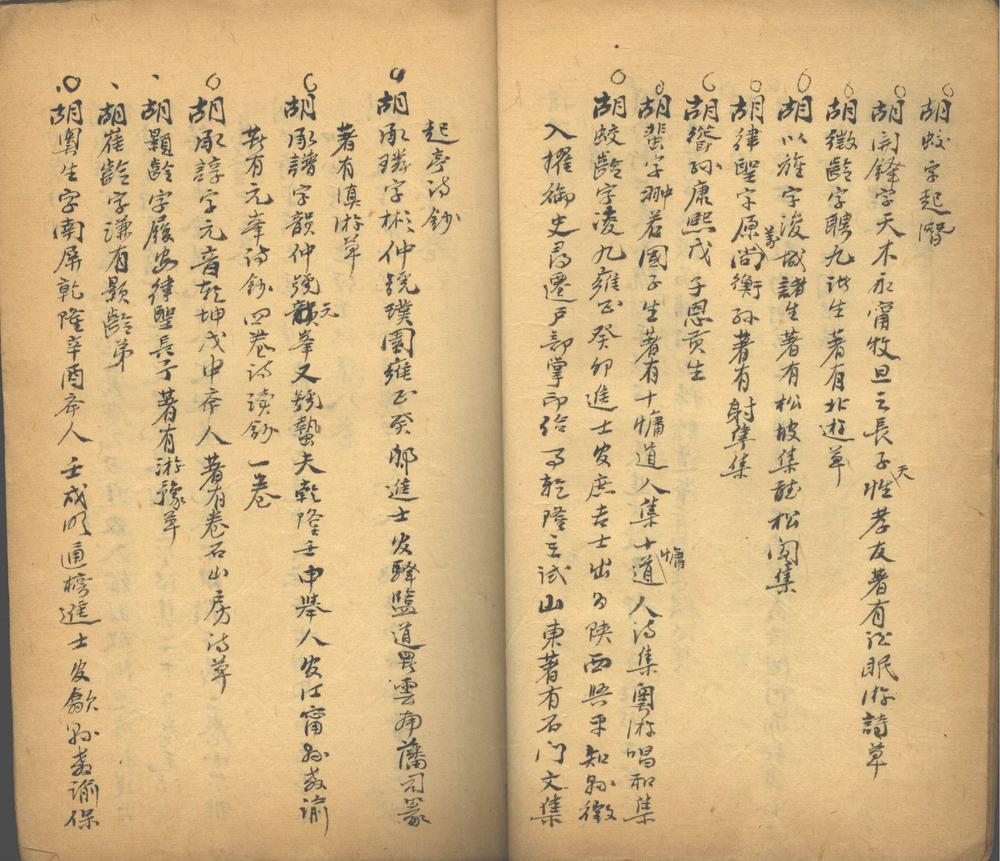 胡蛟字起潛
胡開鋒字天木永甯牧旦之長子性天孝友著有泛眠游詩草
胡徵齡字聘九諸生著有北遊草
胡以旌字浚城諸生著有松坡集聽松閣集
胡律聖字原尚衡孫著有射隼集
胡孫康熙戊子恩貢生
胡蜚字翀若國子生著有十慵道人集十慵道人詩集粵游唱和集
胡蛟齡字凌九雍正癸卯進士發庶吉士出為陝西興平知縣徵
入擢御史尋遷戶部掌印給事乾隆主試山東著有石門文集
起亭詩鈔
胡承璘字彬仲號璞園雍正癸卯進士發驛鹽道署雲南藩司篆
著有滇游草
胡承譜字韻仲號元峯又號蟄夫乾隆壬申舉人發仕甯縣教諭
著有元峯詩鈔四卷詩讀鈔一卷
胡承諄字元音乾坤戊申本人著有卷石山房詩草
胡顥齡字履安律聖長子著有游豫草
胡萑齡字謙有顥齡弟
胡生字南屏乾隆辛酉本人壬戌明通榜進士發歙縣教諭保